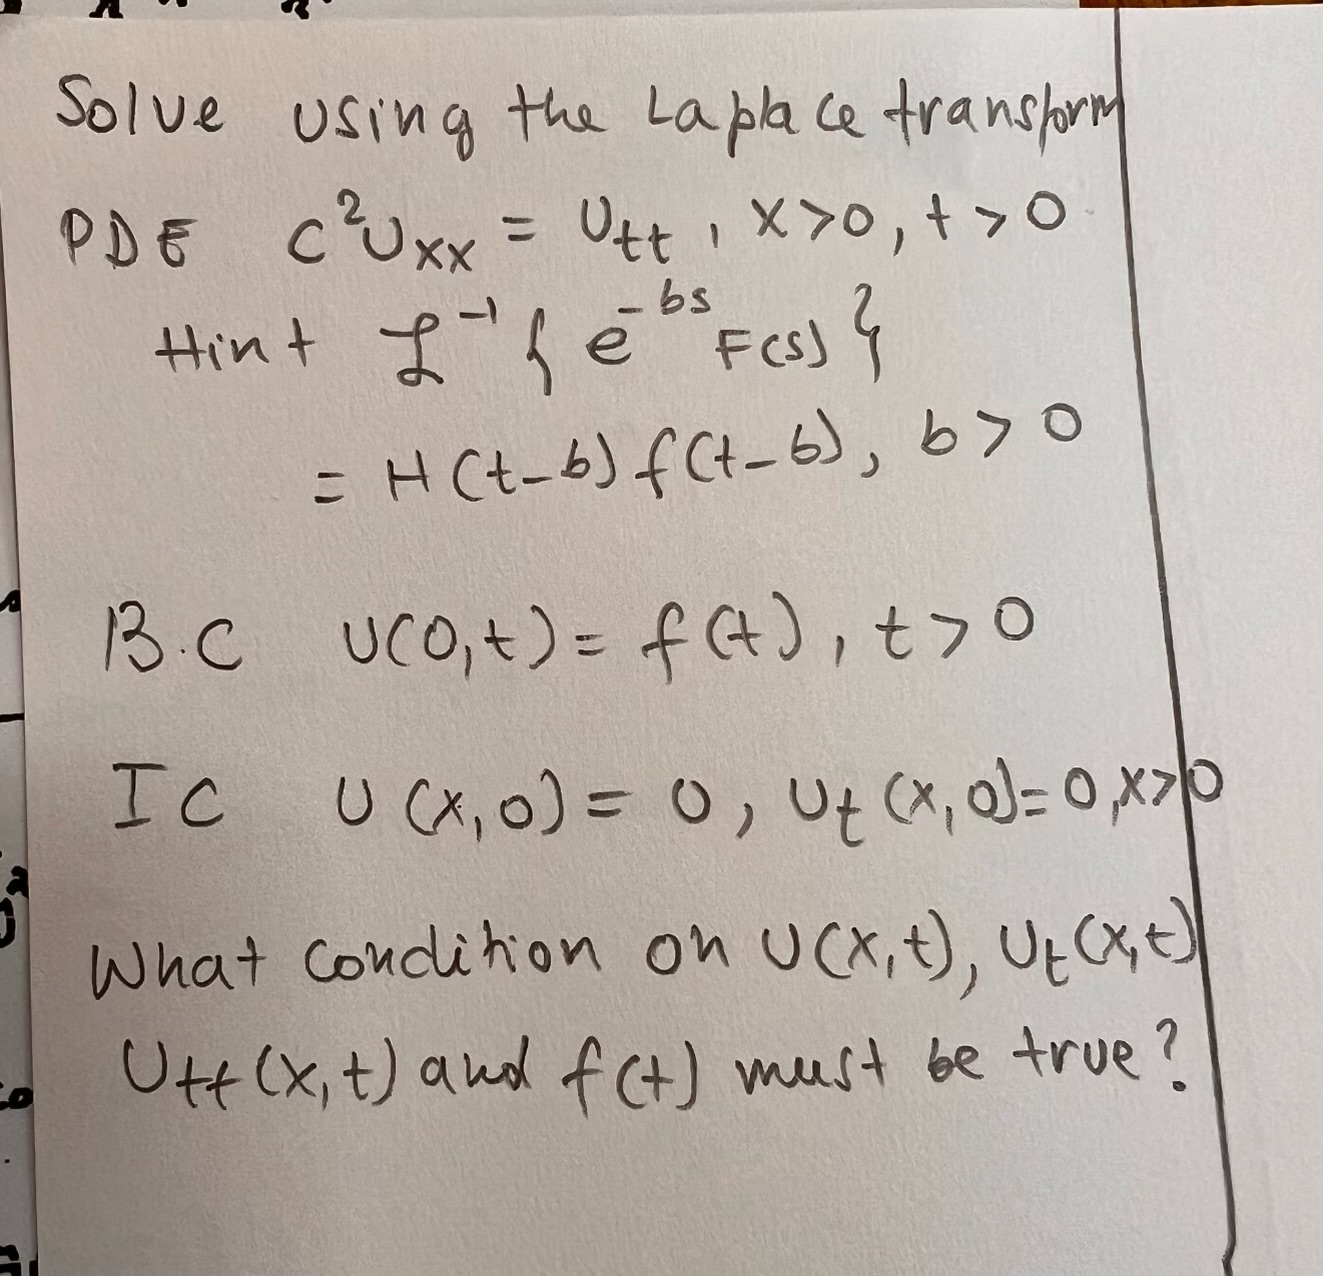 Solve using the Laplace transform
PDE c²Uxx = Utt, x>0, t>0
Hint ℒ⁻¹{e^-bs F(s)}
= H(t-b)f(t-b), b>0
B.C U(0,t) = f(t), t>0
IC U(x,0) = 0, Ut(x,0)=0,x>0
What condition on U(x,t), Ut(x,t)
Utt(x,t) and f(t) must be true?